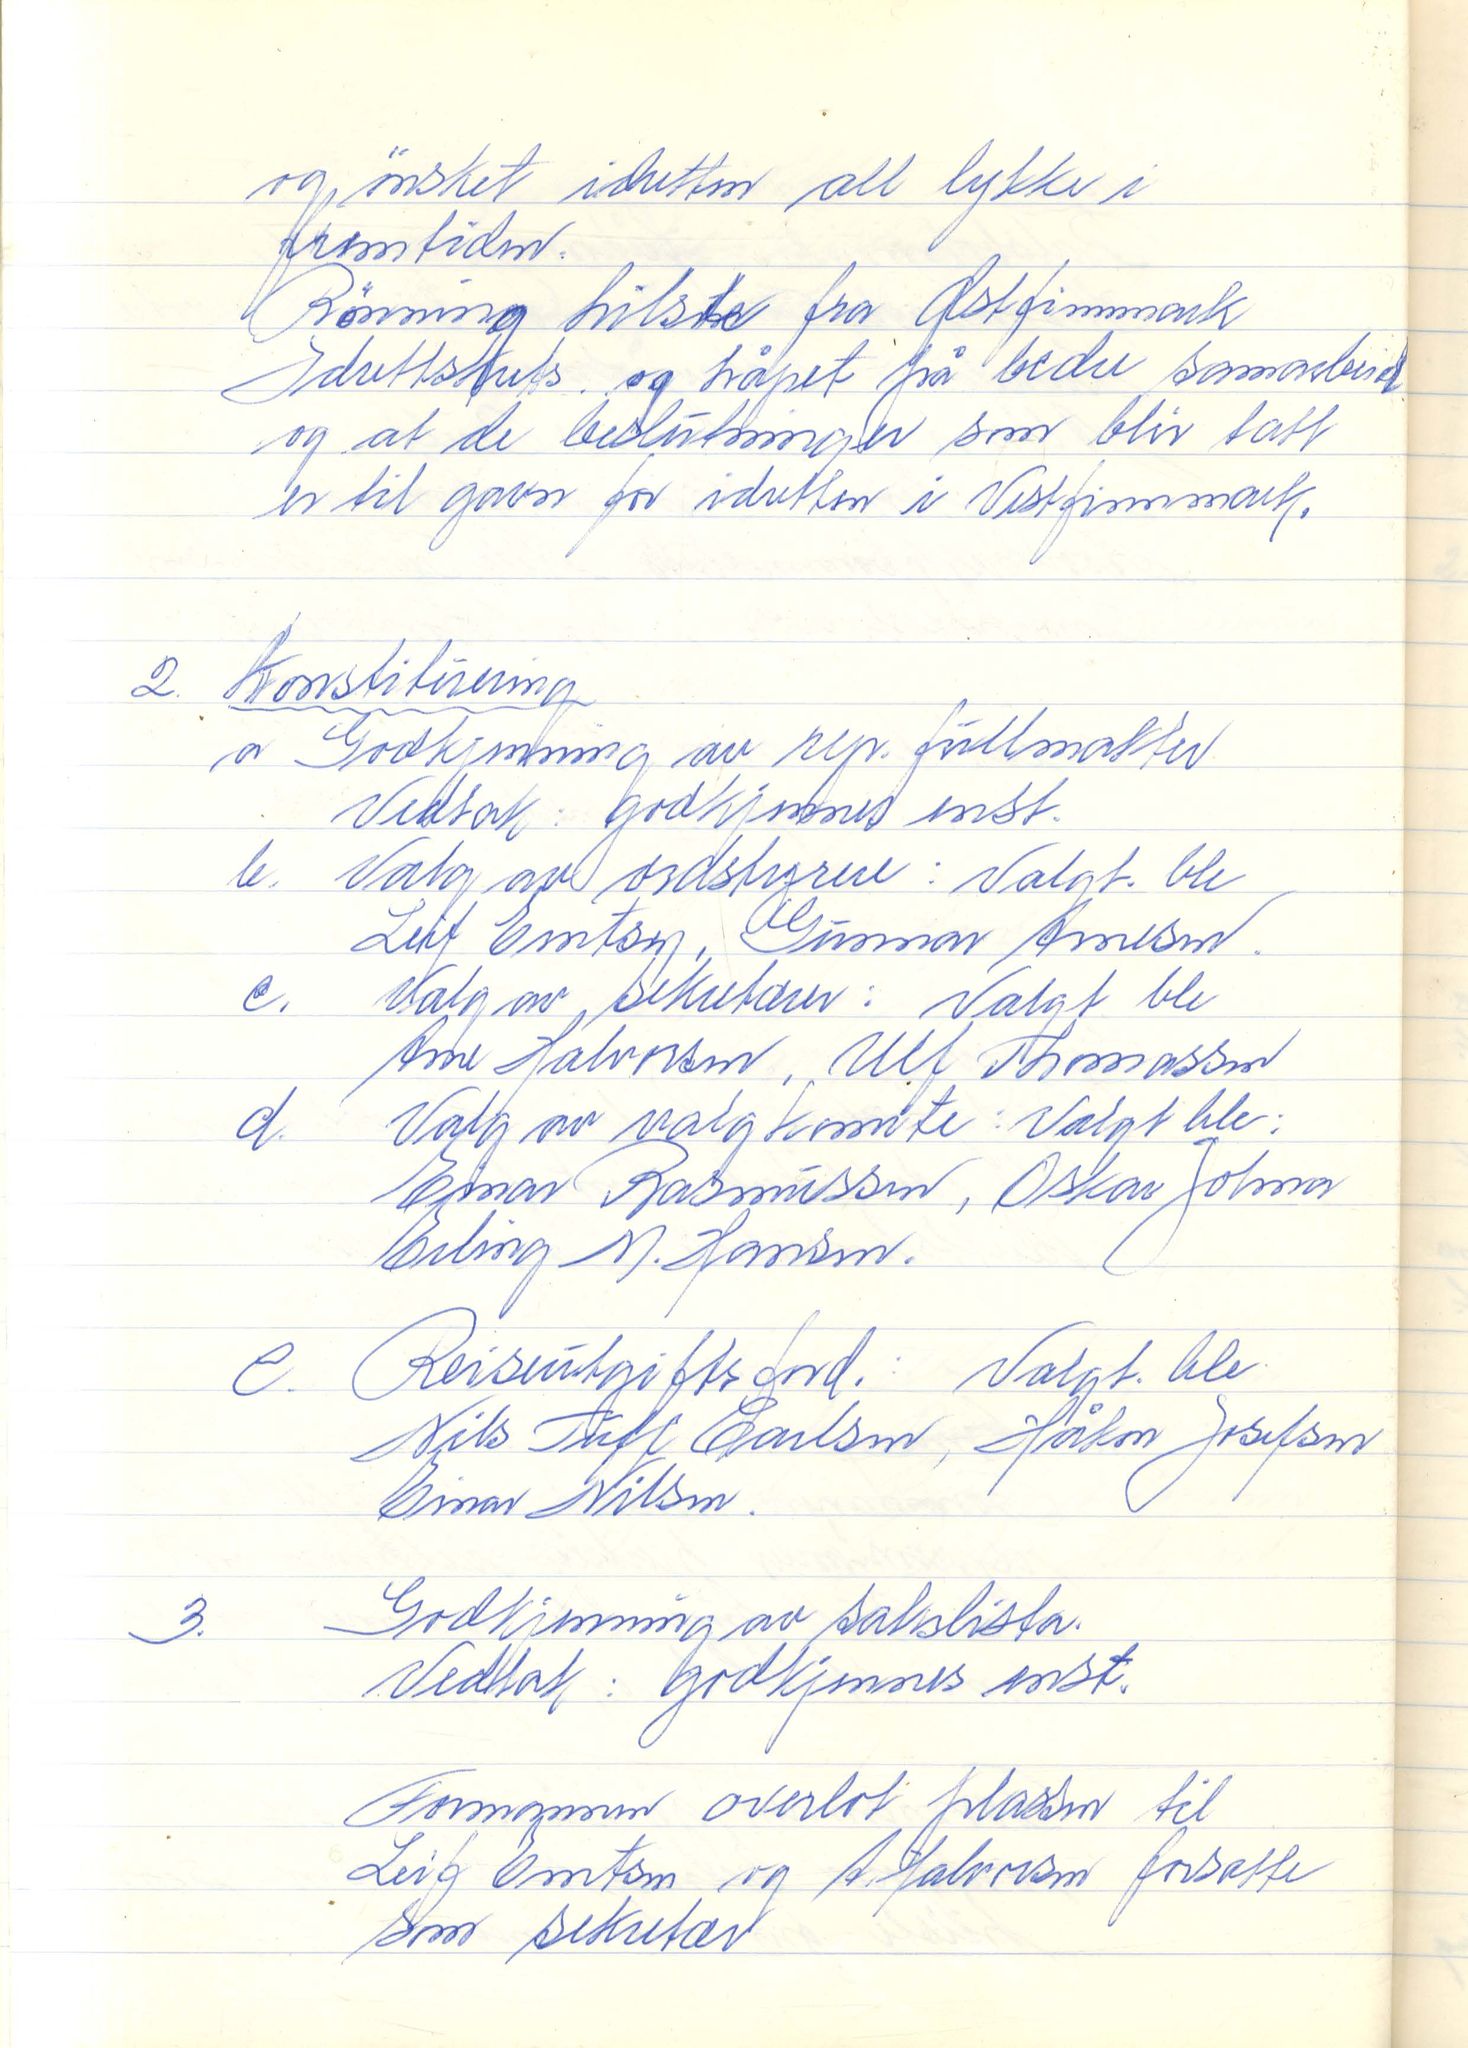 og önsket idretten all lykke i
fremtiden.
Rönning hilste fra Østfinnmark
Idrettskrets og håpet på bedre samarbeid
og at de beslutninger som blir tatt
er til gavn for idretten i Vestfinnmark.
2. Konstituering
a Godkjenning av rep. fullmakter
Vedtak: godkjennes enst.
b. Valg av ordstyrere: Valgt ble
Leif Emtsen, Gunnar Arnesen.
c. Valg av sekretærer: Valgt ble
Arne Halvorsen, Ulf Thomassen
d. Valg av valgkomite: Valgt ble:
Einar Rasmussen, Oskar Johma
Erling M. Hansen.
e. Reiseutgiftsford.: Valgt ble
Nils Tuff Carlsen, Håkon Josefsen
Einar Nilsen.
3. Godkjenning av sakslista.
Vedtak: godkjennes enst.
Formannen overlot plassen til
Leif Emtsen og A. Halvorsen forsatte
som sekretær